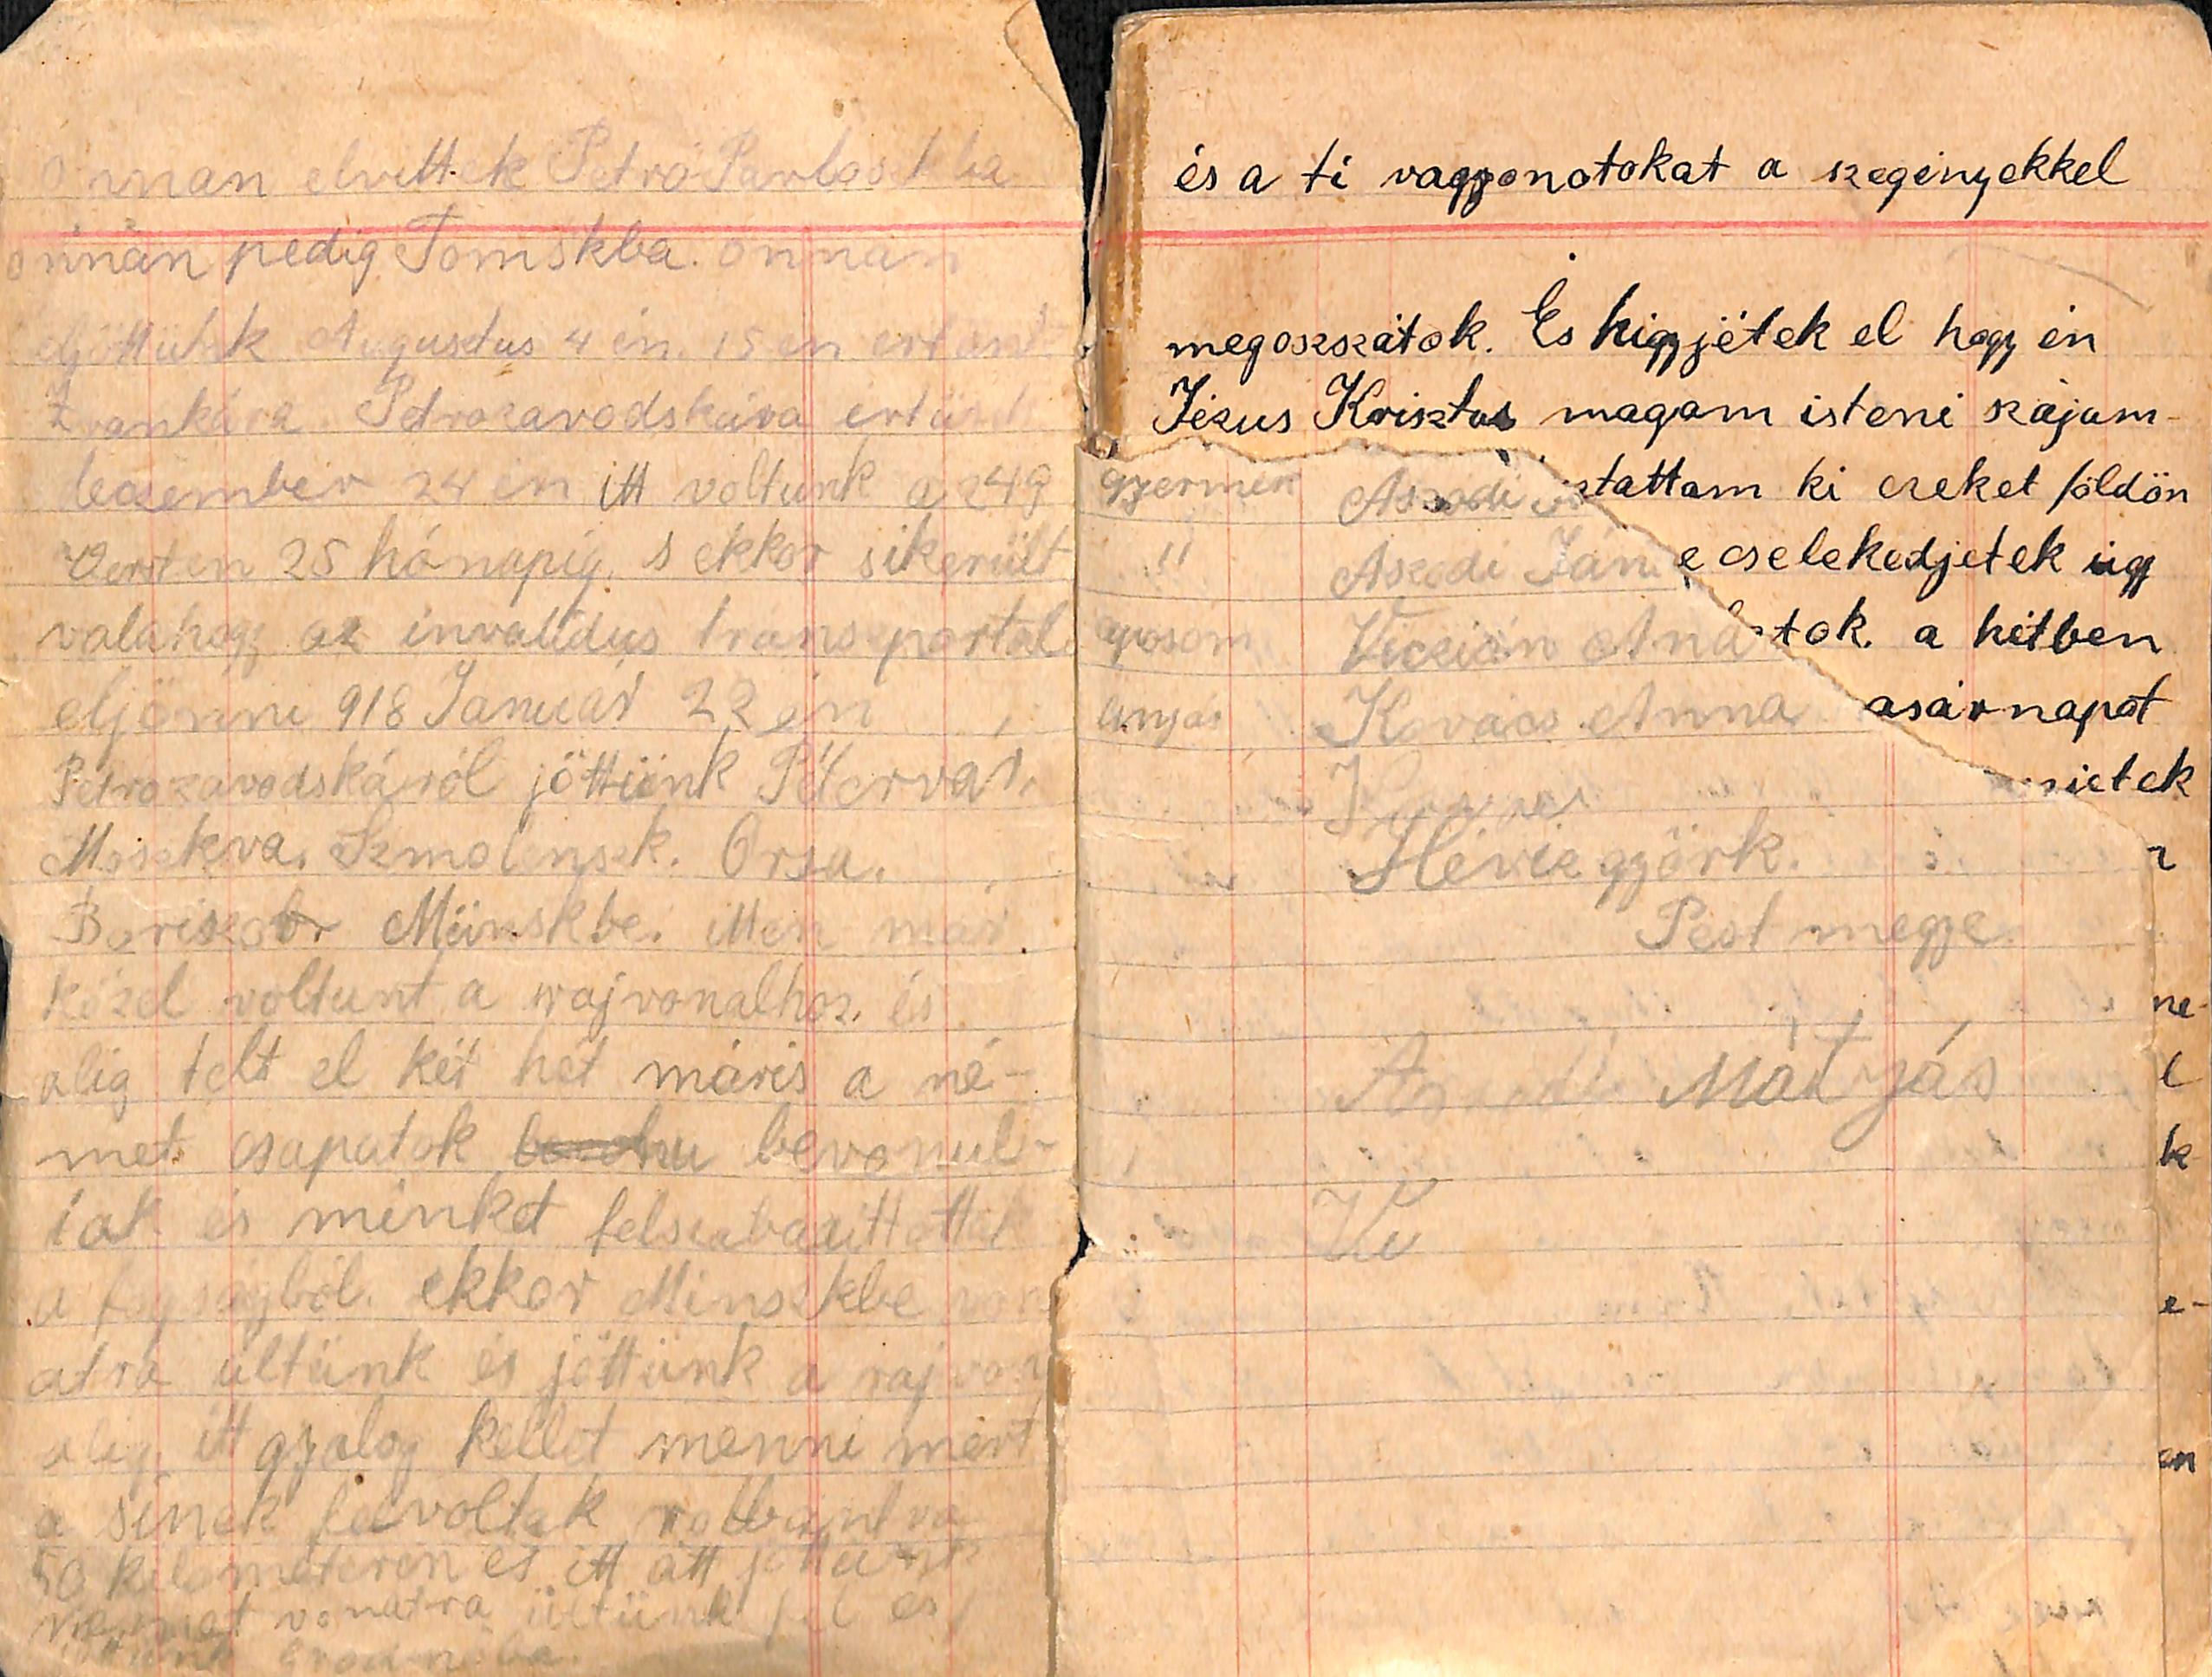 onnan elvittek Petro Pavloskba
onnan pedig Tomskba. onnan
eljöttünk Augusztus 4 én 15 én
Ivankára. Petrozavodskára
deczember 24 én itt voltunk a 249
Versten 25 hónapig. s ekkor sikerült
valahogy az invalidus transzportal
eljönni 918 Január 22 én
Petrozavodskáról jöttünk Pétervár,
Moszkva. Szmolenszk. Orsa.
Boriszobr Münskbe. itten már
közel voltunt a rajvonalhoz. és
alig telt el két hét máris a né-
met csapatok bevonul-
tak és minket felszabadittottak
a fogságból. ekkor Minszkbe von
atra ültünk és jöttünk a rajvon
alig. itt gyalog kellet menni mert
a sinek fel voltak robbantva
50 kilometeren és itt átt jöttünk
német vonatra ültünk fel és
és a ti vagyonotokat a szegényekkel
megoszszátok. És higyjétek el hogy én
Jézus Krisztus magam isteni szájam-
sztattam ki ezeket földön
e cselekedjetek úgy
tok. a hitben
asárnapot
sietek
ne-
l
k
e-
en
gyermek Aszodi
" Aszodi Ján
aposom Viczián And
anyás Kovács Anna
Hévizgyörk.
Pest megye.
Aszodi Mátyás
Vi